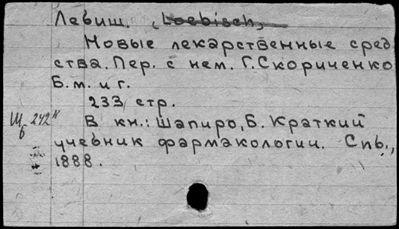 Левиш. (Loebisch)
Новые лекарственные сред
ства. Пер. с нем. Г. Скориченко
Б.м. и г.
233 стр.
В кн.: Шапиро, Б. Краткий
учебник фармакологии. Спб.,
1888.
242